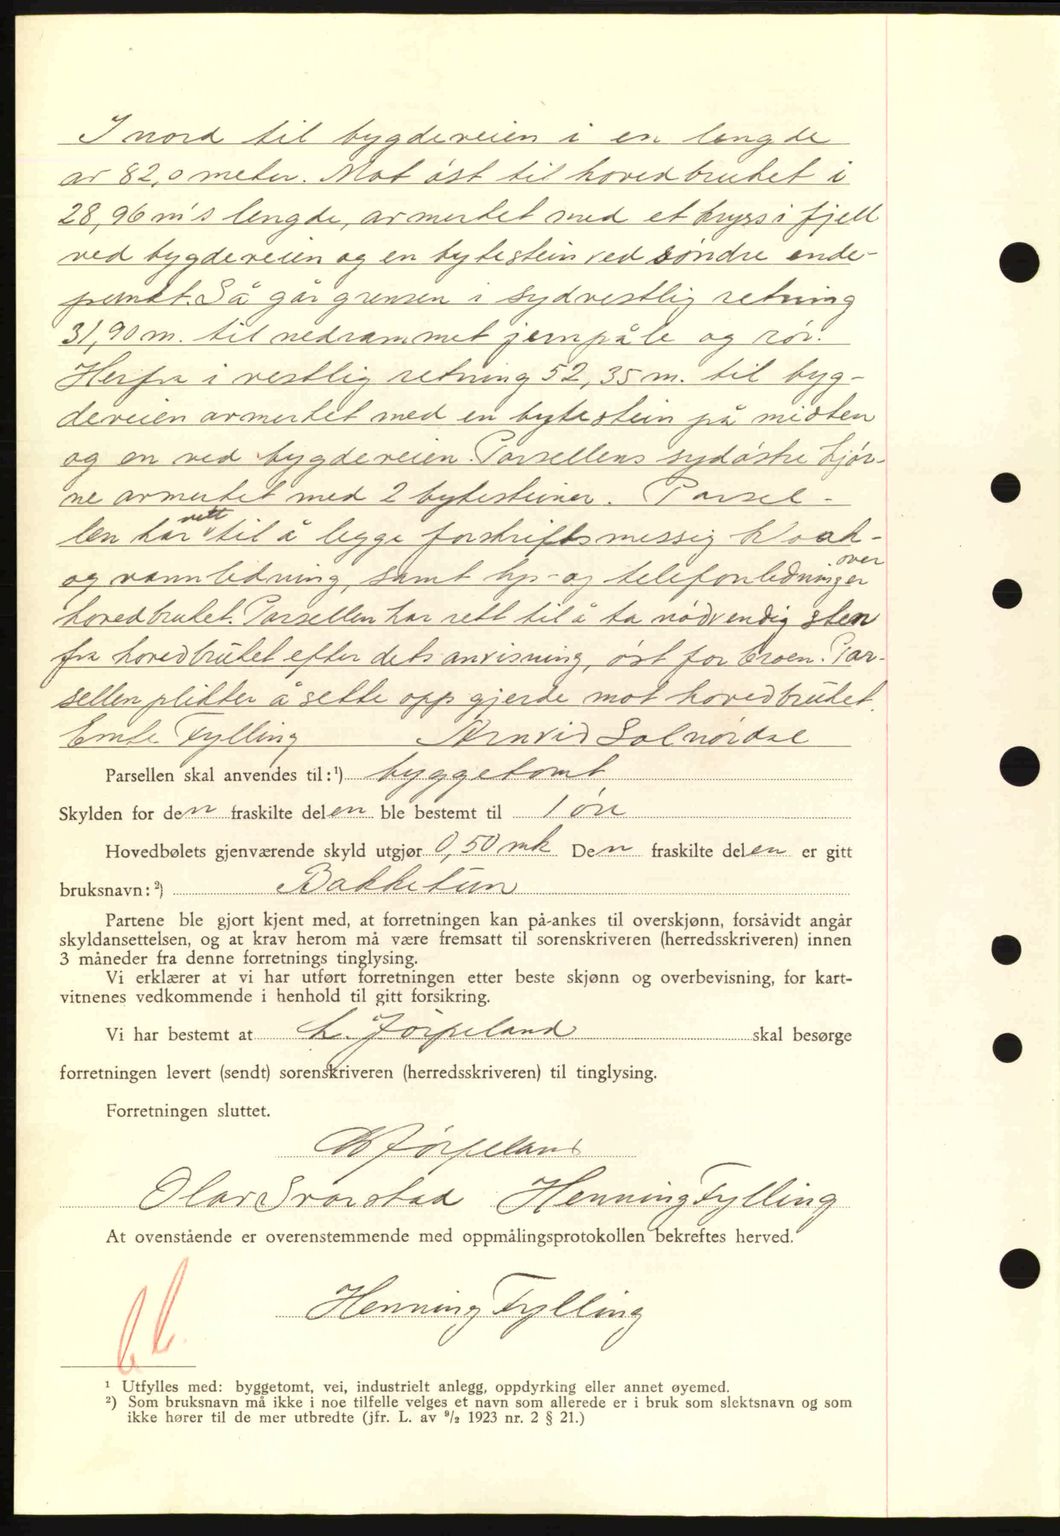 I nord til bygdeveien i en lengde
av 82,0 meter. Mot öst til hovedbruket i
28,96 m's lengde, avmerket med et kryss i fjell
ved bygdeveien og en bytestein ved söndre ende-
punkt. Så går grensen i sydvestlig retning
31,90 m. til nedrammet jernpåle og rör.
Herfra i vestlig retning 52,35 m. til byg-
deveien avmerket med en bytestein på midten
og en ved bygdeveien. Parsellens sydöstre hjör-
ne avmerket med 2 bytesteiner. Parsel-
len har rett til å legge forskriftsmessig kloak-
og vannledning, samt lys- og telefonledninger over
hovedbruket. Parsellen har rett til å ta nödvendig sten
fra hovedbruket efter dets anvisning, öst for broen. Par-
sellen plikter å sette opp gjerde mot hovedbruket.
Fylling Arnvid Solnördal
Parsellen skal anvendes til:¹) byggetomt
Skylden for den fraskilte delen ble bestemt til 1 öre
Hovedbølets gjenværende skyld utgjør 0,50 mk Den fraskilte delen er gitt
bruksnavn:²) Bakketun
Partene ble gjort kjent med, at forretningen kan på-ankes til overskjønn, forsåvidt angår
skyldansettelsen, og at krav herom må være fremsatt til sorenskriveren (herredsskriveren) innen
3 måneder fra denne forretnings tinglysing.
Vi erklærer at vi har utført forretningen etter beste skjønn og overbevisning, for kart-
vitnenes vedkommende i henhold til gitt forsikring.
Vi har bestemt at K. Jörpeland skal besørge
forretningen levert (sendt) sorenskriveren (herredsskriveren) til tinglysing.
Forretningen sluttet.
K Jörpeland
Olav Svorstad Henning Fylling
At ovenstående er overenstemmende med oppmålingsprotokollen bekreftes herved.
Henning Fylling
¹ Utfylles med: byggetomt, vei, industrielt anlegg, oppdyrking eller annet øyemed.
²) Som bruksnavn må ikke i noe tilfelle velges et navn som allerede er i bruk som slektsnavn og som
ikke hører til de mer utbredte (jfr. L. av ⁹/₂ 1923 nr. 2 § 21.)